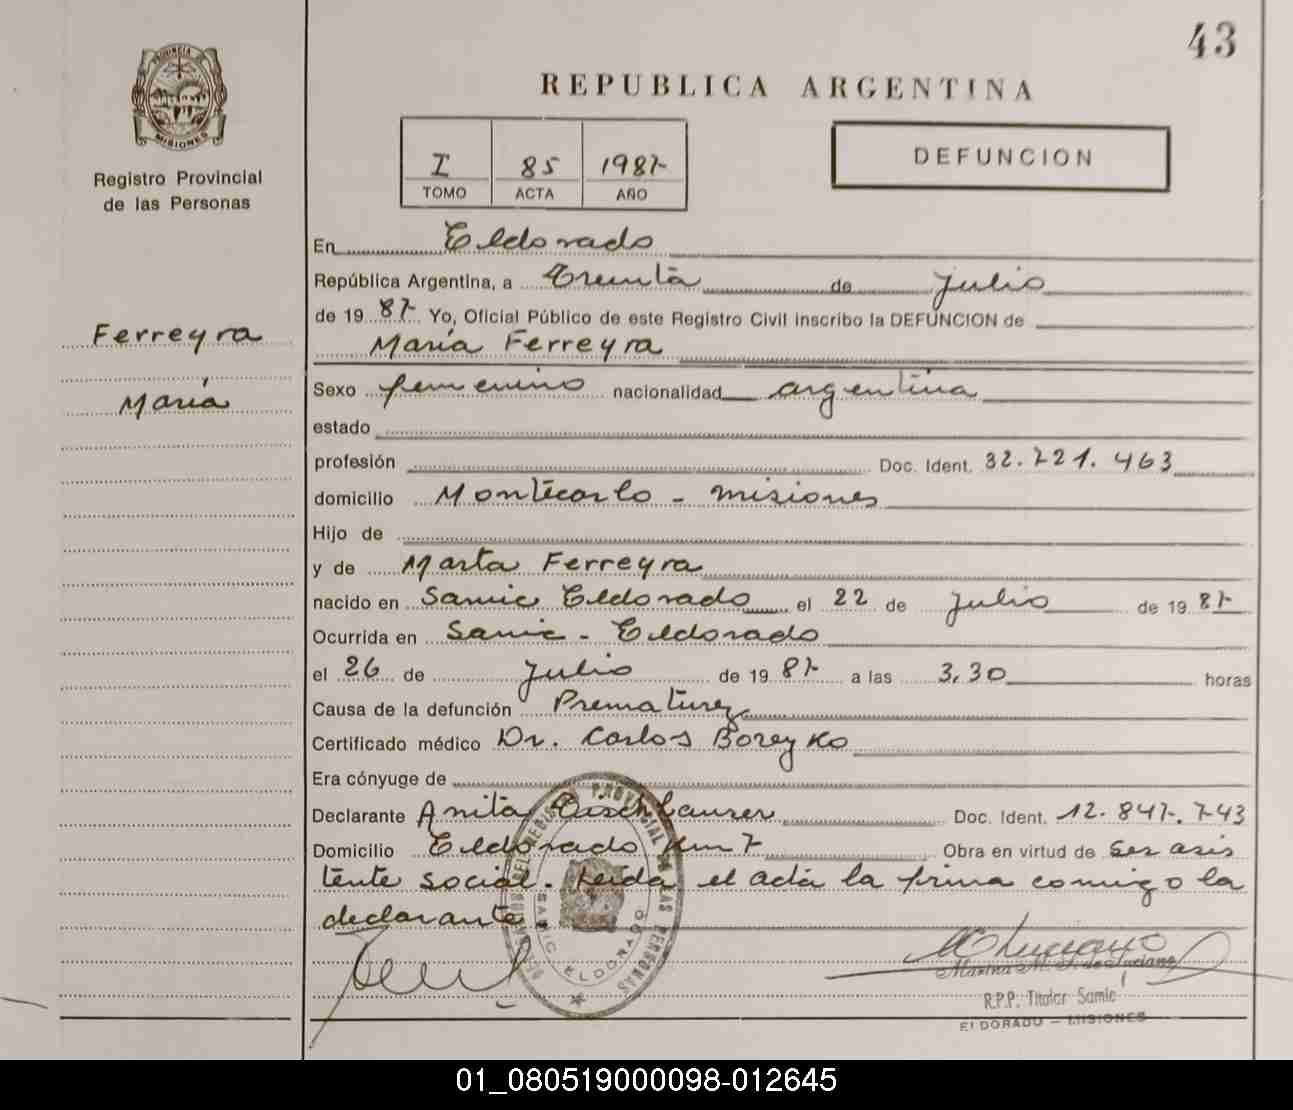 43
PROVINCIA
MISIONES
Registro Provincial
de las Personas
REPUBLICA ARGENTINA
I 85 1987
TOMO ACTA AÑO
DEFUNCION
En Eldorado
República Argentina, a Treinta de Julio
de 1987 Yo, Oficial Público de este Registro Civil inscribo la DEFUNCION de
Ferreyra
María Ferreyra
María
Sexo femenino nacionalidad argentina
estado
profesión Doc. Ident. 32.721.463
domicilio Montecarlo - misiones
Hijo de
y de Marta Ferreyra
nacido en Samic Eldorado el 22 de Julio de 1987
Ocurrida en Samic - Eldorado
el 26 de Julio de 1987 a las 3,30 horas
Causa de la defunción Prematurez
Certificado médico Dr. Carlos Boreyko
Era cónyuge de
Declarante Anita Doc. Ident. 12.847.743
Domicilio Eldorado km 7 Obra en virtud de ser asis
tente social. Leída el acta la firma conmigo la
declarante
PROVINCIAL DE LAS PERSONAS
SAMIC ELDORADO
R.P.P. Titular Samic
ELDORADO — MISIONES
01_080519000098-012645